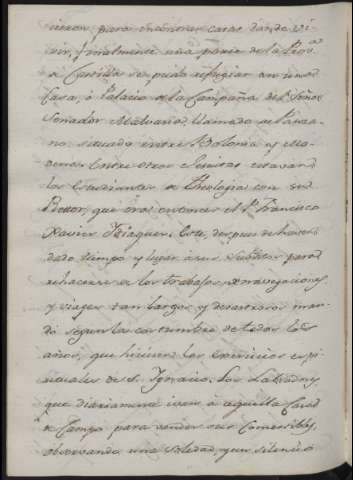 vieron para encontrar casas donde vi-
vir, finalmente una parte de la Prov.a
de Castilla se pudo refugiar en una
Casa, ò Palacio de la Campaña del Señor
Senador Malvasia llamado de Panza-
no situado entre Bolonia y Mo-
dena Entre otros Jesuitas estavan
los Estudiantes de Theologia con su
Rettor, que era entonces el P. Francisco
Xavier Este, despues de haver
dado tiempo y lugar à sus para
rehacerse de los trabajos de navegaciones,
y viages tan largos, y desastrosos, man-
dò segun la costumbre de todos los
años, que hiciesen los exercicios espi-
rituales de S. Ignacio. Los Labradores
que diariamente ivan à aquella Casa
de Campo para vender sus Comestibles,
observando una soledad, y un silencio